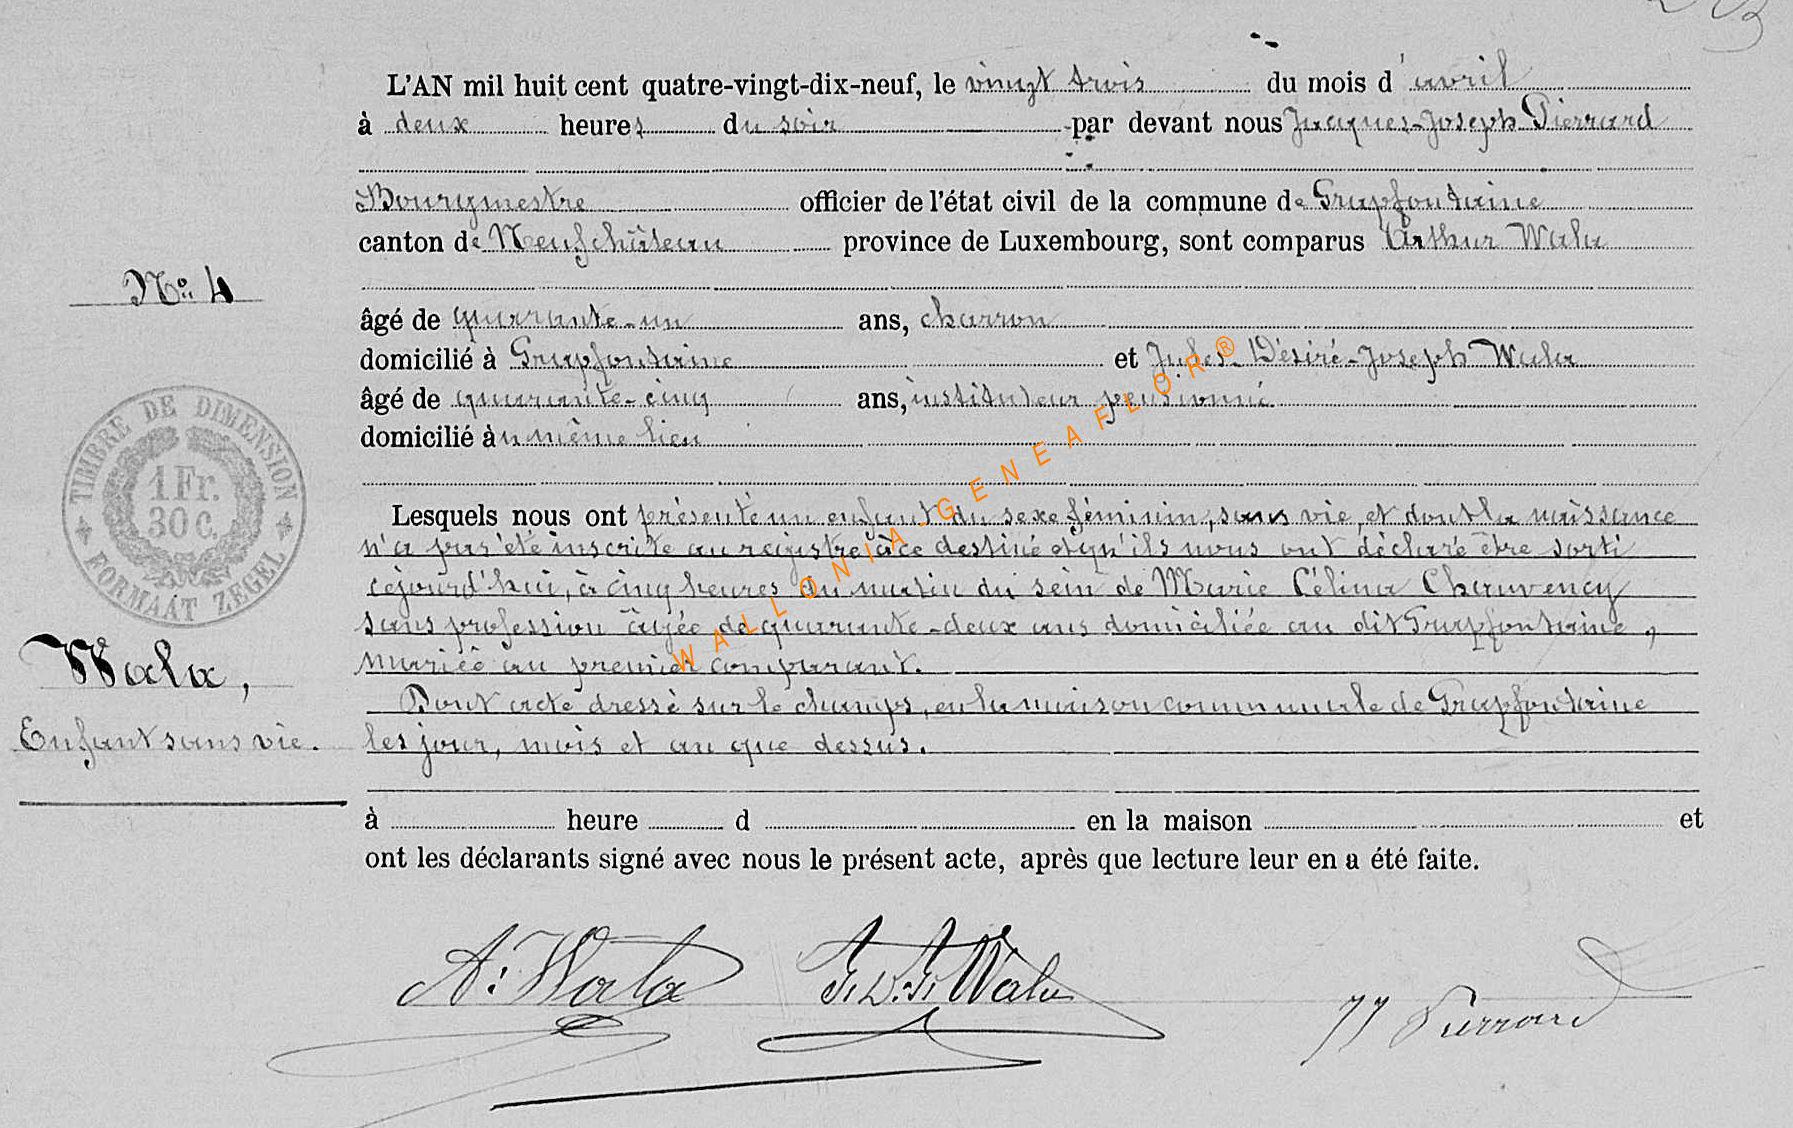 L'AN mil huit cent quatre-vingt-dix-neuf, le vingt trois du mois d'avril
à deux heures du soir par devant nous Jacques-Joseph Pierrard
Bourgmestre officier de l'état civil de la commune de Grapfontaine
canton de Neufchâteau province de Luxembourg, sont comparus Arthur Wala
N° 4
âgé de quarante-un ans, charron
domicilié à Grapfontaine et Jules-Désiré-Joseph Wala
âgé de quarante-cinq ans, instituteur pensionné
domicilié au même lieu
TIMBRE DE DIMENSION
1 Fr.
30 C.
FORMAAT ZEGEL
WALLONIA-GENEAFLOR®
Lesquels nous ont présenté un enfant du sexe féminin, sans vie, et dont la naissance
n'a pas été inscrite au registre à ce destiné et qu'ils nous ont déclaré être sorti
cejourd'hui, à cinq heures du matin du sein de Marie Célina Chauvency
sans profession âgée de quarante-deux ans domiciliée au dit Grapfontaine,
mariée au premier comparant.
Wala,
Dont acte dressé sur le champs, en la maison communale de Grapfontaine
Enfant sans vie.
les jour, mois et an que dessus.
à heure d en la maison et
ont les déclarants signé avec nous le présent acte, après que lecture leur en a été faite.
A. Wala J. D. J. Wala JJ Pierrard